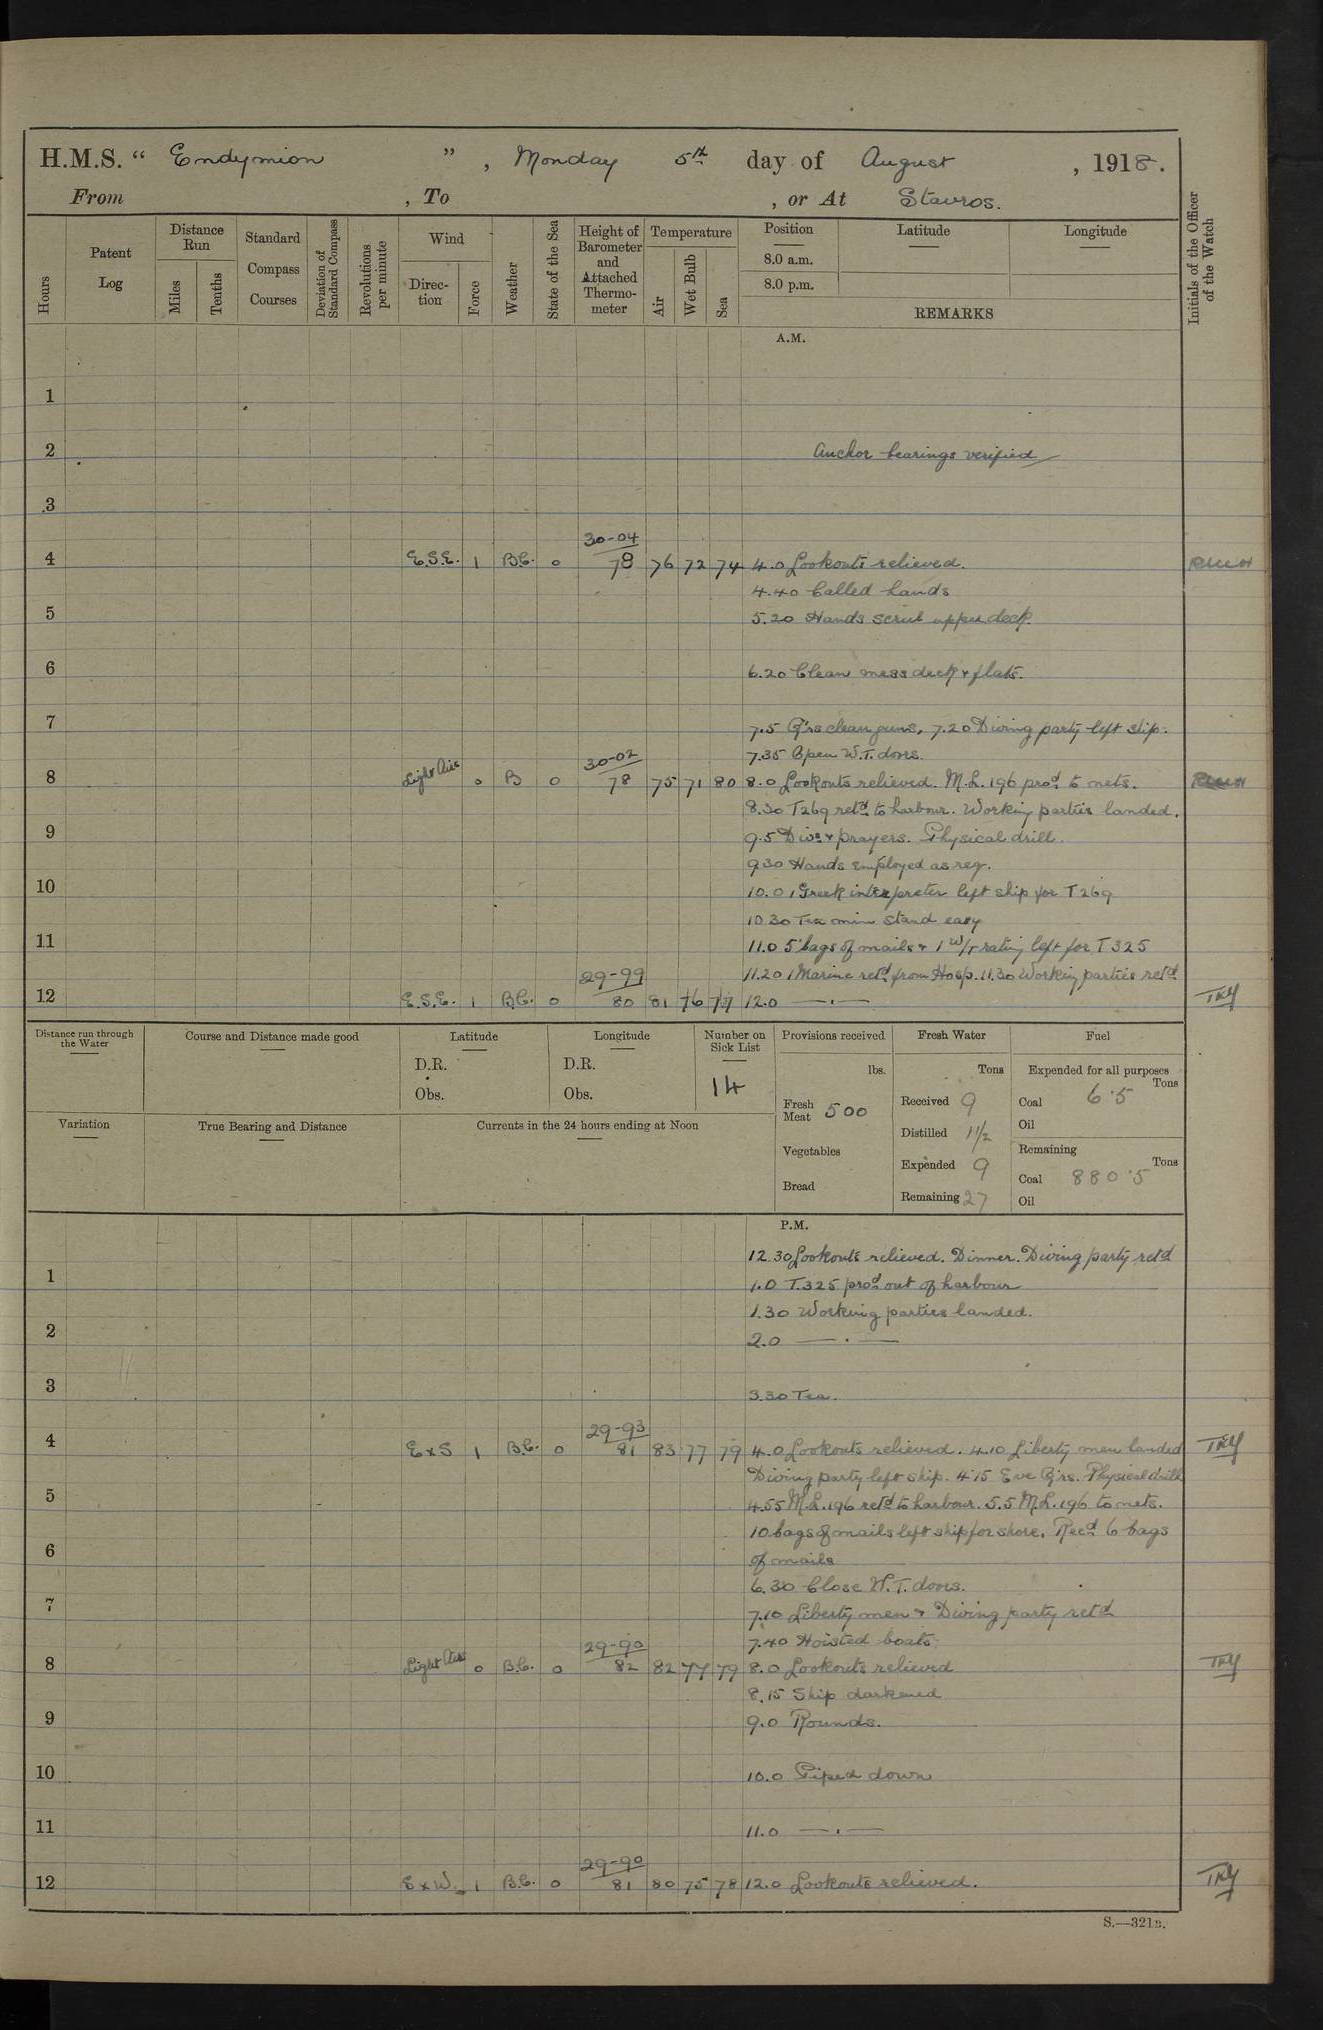 H.M.S. “ Endymion ” , Monday 5th day of August , 1918.
From , To , or At Stavros.
Hours
Patent Log
Distance Run
Miles
Tenths
Standard Compass Courses
Deviation of Standard Compass
Revolutions per minute
Wind
Direction
Force
Weather
State of the Sea
Height of Barometer and Attached Thermometer
Temperature
Air
Wet Bulb
Sea
Position
8.0 a.m.
8.0 p.m.
Latitude
Longitude
REMARKS
Initials of the Officer of the Watch
A.M.
1
2 Anchor bearings verified
3
30-04
4 E.S.E. 1 B.C. 0 78 76 72 74 4.0 Lookouts relieved.
4.40 Called hands
5
5.20 Hands scrub upper deck.
6
6.20 Clean mess deck & flats.
7
7.5 Q'rs clean guns, 7.20 Diving party left ship.
7.35 Open W.T. doors.
30-02
8 Light Airs 0 B 0 78 75 71 80 8.0 Lookouts relieved. M.L. 196 prod to nets.
8.30 T269 retd to harbour. Working parties landed.
9
9.5 Divs & prayers. Physical drill.
9.30 Hands employed as req.
10
10.0 1 Greek interpreter left ship for T269
10.30 Ten min stand easy
11
11.0 5 bags of mails & 1 W/T rating left for T325
11.20 1 Marine retd from Hosp. 11.30 Working parties retd
29-99
12 E.S.E. 1 B.C. 0 80 81 76 77 12.0 —.— TKY
Distance run through the Water
Course and Distance made good
Latitude
D.R.
Obs.
Longitude
D.R.
Obs.
Number on Sick List
14
Provisions received
lbs.
Fresh Meat 500
Vegetables
Bread
Fresh Water
Tons
Received 9
Distilled 1 1/2
Expended 9
Remaining 27
Fuel
Expended for all purposes
Tons
Coal 6.5
Oil
Remaining
Tons
Coal 880.5
Oil
Variation
True Bearing and Distance
Currents in the 24 hours ending at Noon
P.M.
12.30 Lookouts relieved. Dinner. Diving party retd
1
1.0 T.325 prod out of harbour
1.30 Working parties landed.
2
2.0 —.—
3
3.30 Tea.
29-93
4 E x S 1 B.C. 0 81 83 77 79 4.0 Lookouts relieved. 4.10 Liberty men landed TKY
Diving party left ship. 4.15 Eve Q'rs. Physical drill
5
4.55 M.L. 196 retd to harbour. 5.5 M.L. 196 to nets.
10 bags of mails left ship for shore. Recd 6 bags
6
of mails
6.30 Close W.T. doors.
7
7.10 Liberty men & Diving party retd
7.40 Hoisted boats
29-90
8 Light Airs 0 B.C. 0 82 82 77 79 8.0 Lookouts relieved TKY
8.15 Ship darkened
9
9.0 Rounds.
10
10.0 Piped down
11
11.0 —.—
29-90
12 E x W. 1 B.C. 0 81 80 75 78 12.0 Lookouts relieved. TKY
S.—321B.